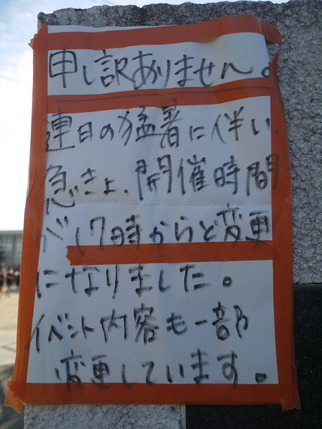 申し訳ありません。
連日の猛暑に伴い
急きょ、開催時間
が17時からと変更
になりました。
イベント内容も一部
変更しています。